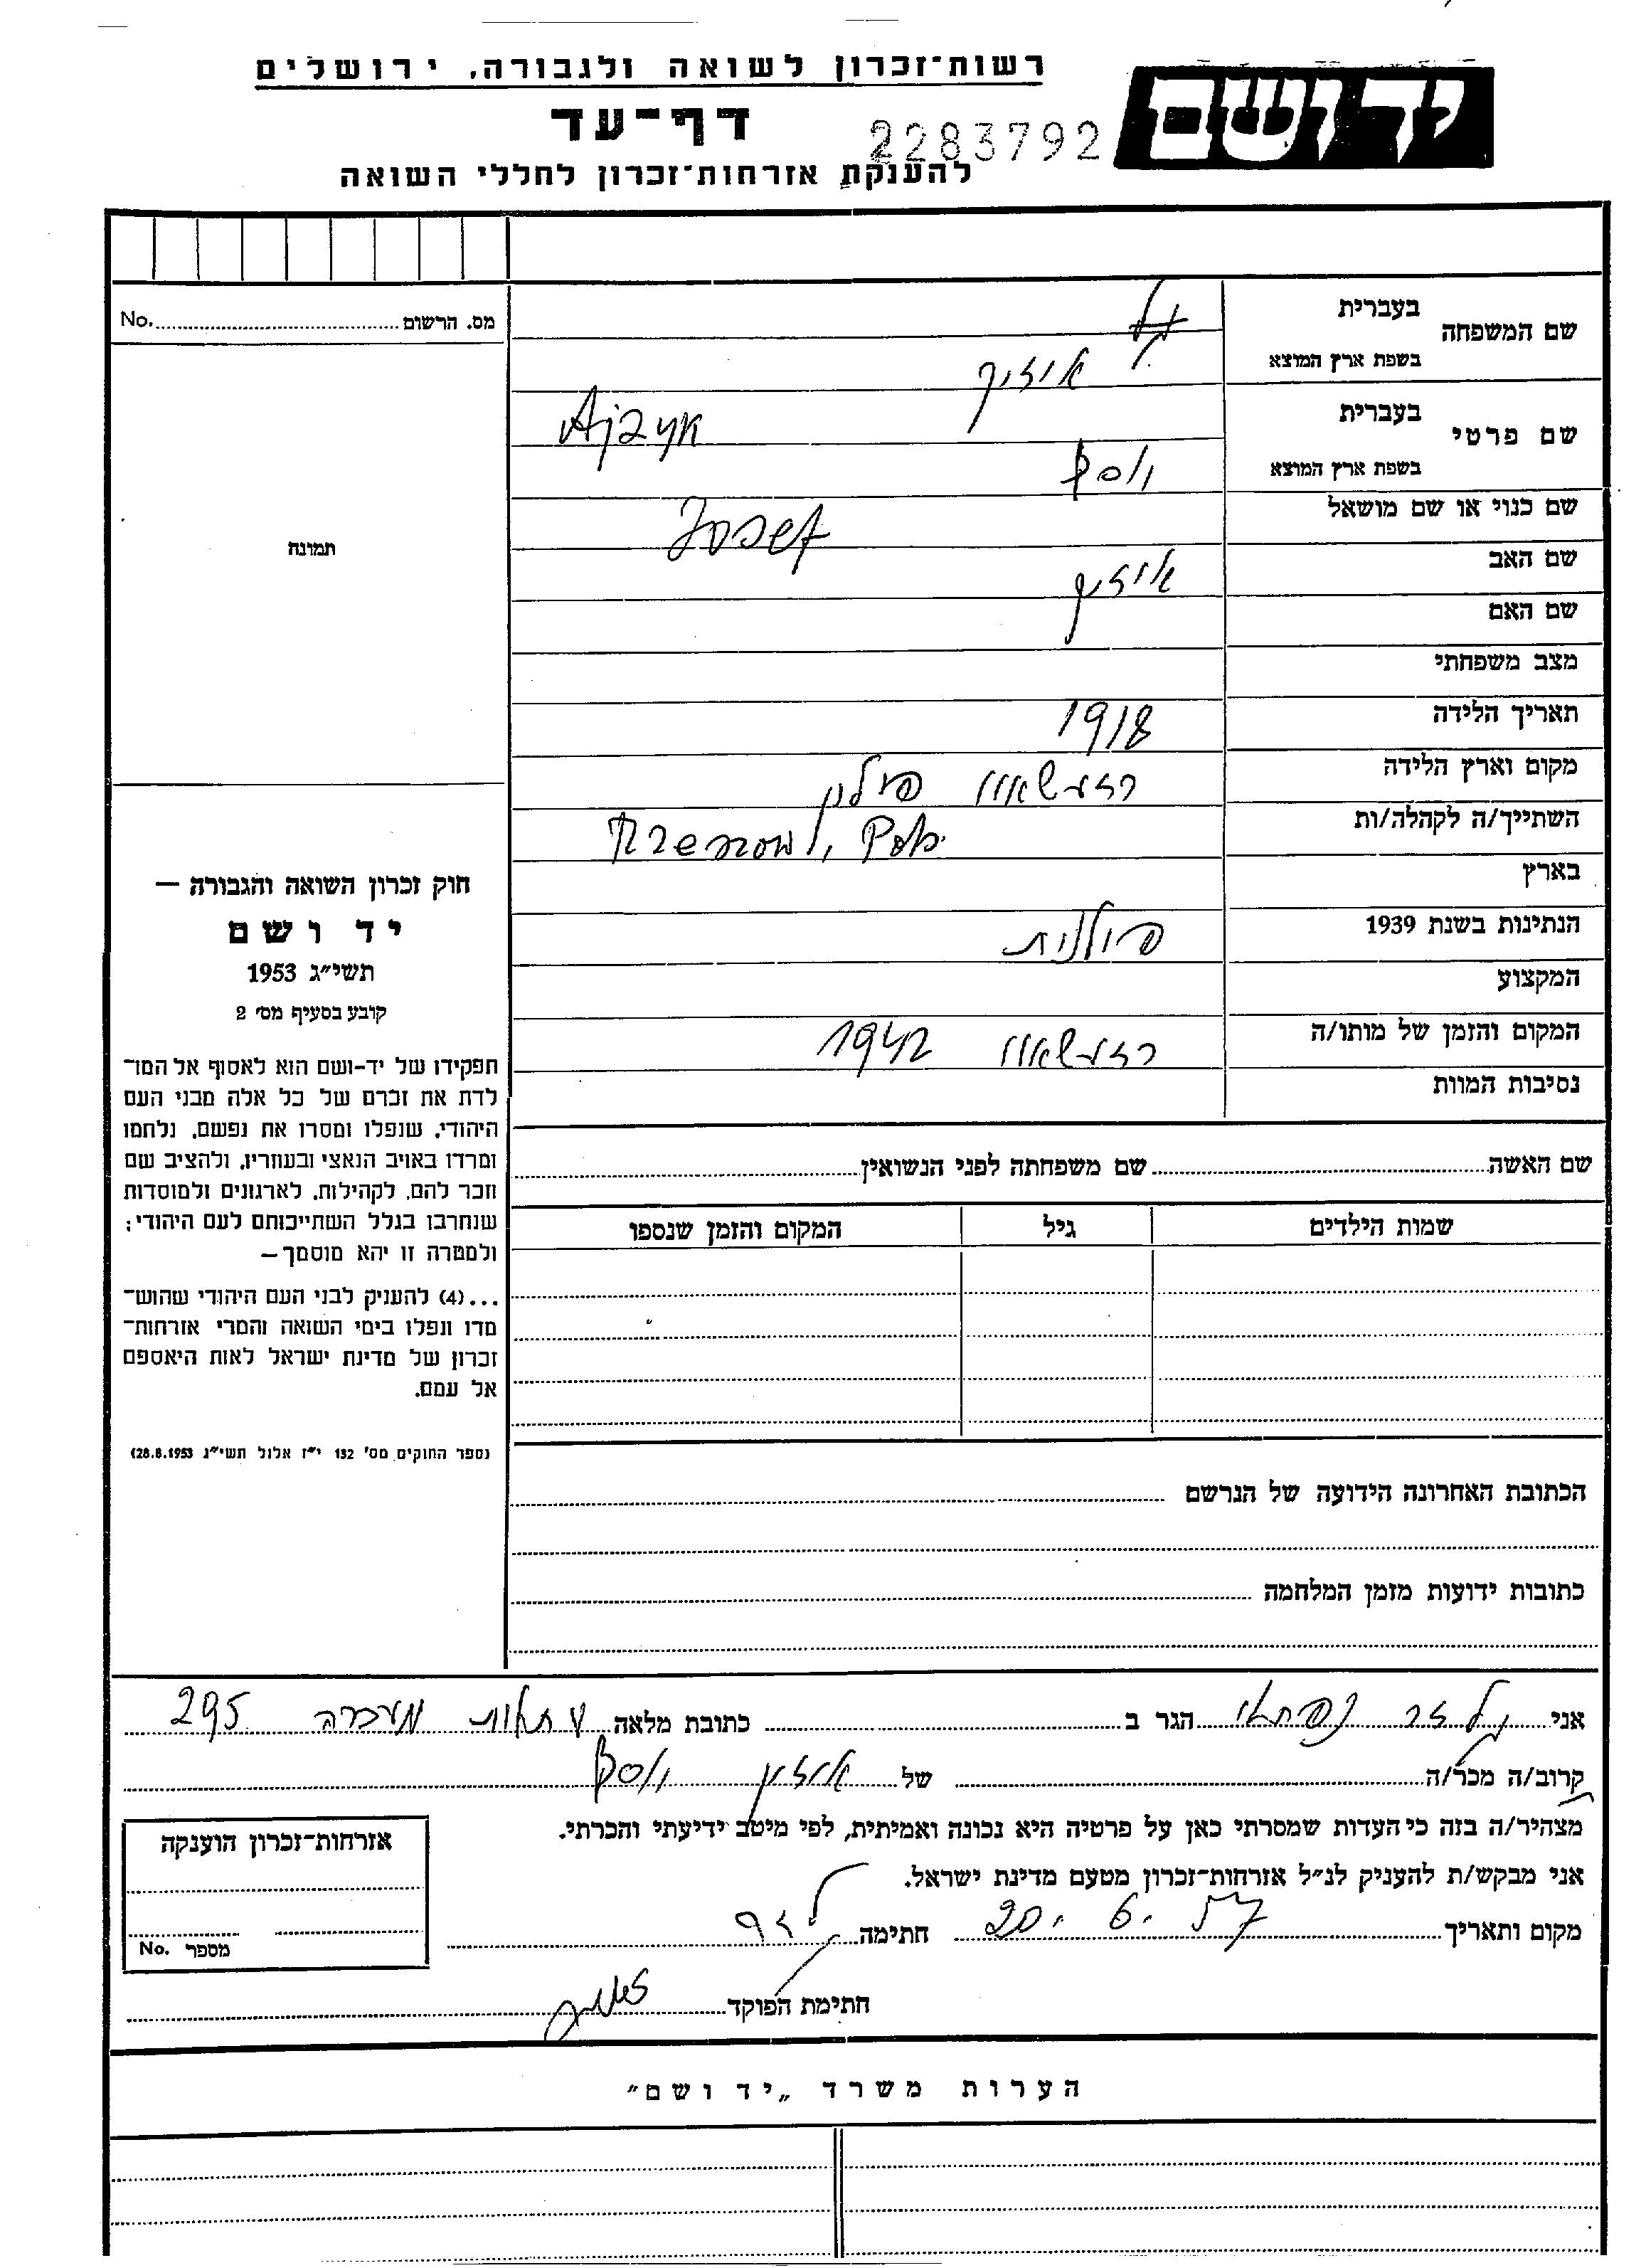 רשות־זכרון לשואה ולגבורה, ירושלים
יד ושם
דף־עד
2283792
להענקת אזרחות־זכרון לחללי השואה
שם המשפחה
בעברית
בשפת ארץ המוצא
אייזיק
Ajzyk
שם פרטי
בעברית
בשפת ארץ המוצא
יוסף
שם כנוי או שם מושאל
Josef
שם האב
אייזיק
שם האם
מצב משפחתי
תאריך הלידה
1918
מקום וארץ הלידה
רזעשאוו פולין
השתייך/ה לקהלה/ות
בארץ
הנתינות בשנת 1939
פולנית
המקצוע
המקום והזמן של מותו/ה
רזעשאוו 1942
נסיבות המוות
שם האשה
שם משפחתה לפני הנשואין
שמות הילדים
גיל
המקום והזמן שנספו
הכתובת האחרונה הידועה של הנרשם
כתובות ידועות מזמן המלחמה
מס. הרשום
No.
תמונה
חוק זכרון השואה והגבורה —
יד ושם
תשי״ג 1953
קובע בסעיף מס׳ 2
תפקידו של יד-ושם הוא לאסוף אל המו־
לדת את זכרם של כל אלה מבני העם
היהודי, שנפלו ומסרו את נפשם, נלחמו
ומרדו באויב הנאצי ובעוזריו, ולהציב שם
וזכר להם, לקהילות, לארגונים ולמוסדות
שנחרבו בגלל השתייכותם לעם היהודי;
ולמטרה זו יהא מוסמך—
...(4) להעניק לבני העם היהודי שהוש־
מדו ונפלו בימי השואה והמרי אזרחות־
זכרון של מדינת ישראל לאות היאספם
אל עמם.
(ספר החוקים מס׳ 132 י״ז אלול תשי״ג 28.8.1953)
אני נפתלי הגר ב כתובת מלאה מעברה 295
קרוב/ה מכר/ה של אייזיק יוסף
מצהיר/ה בזה כי העדות שמסרתי כאן על פרטיה היא נכונה ואמיתית, לפי מיטב ידיעתי והכרתי.
אני מבקש/ת להעניק לנ״ל אזרחות־זכרון מטעם מדינת ישראל.
מקום ותאריך 20. 6. 57 חתימה
חתימת הפוקד
אזרחות־זכרון הוענקה
מספר No.
הערות משרד „יד ושם"